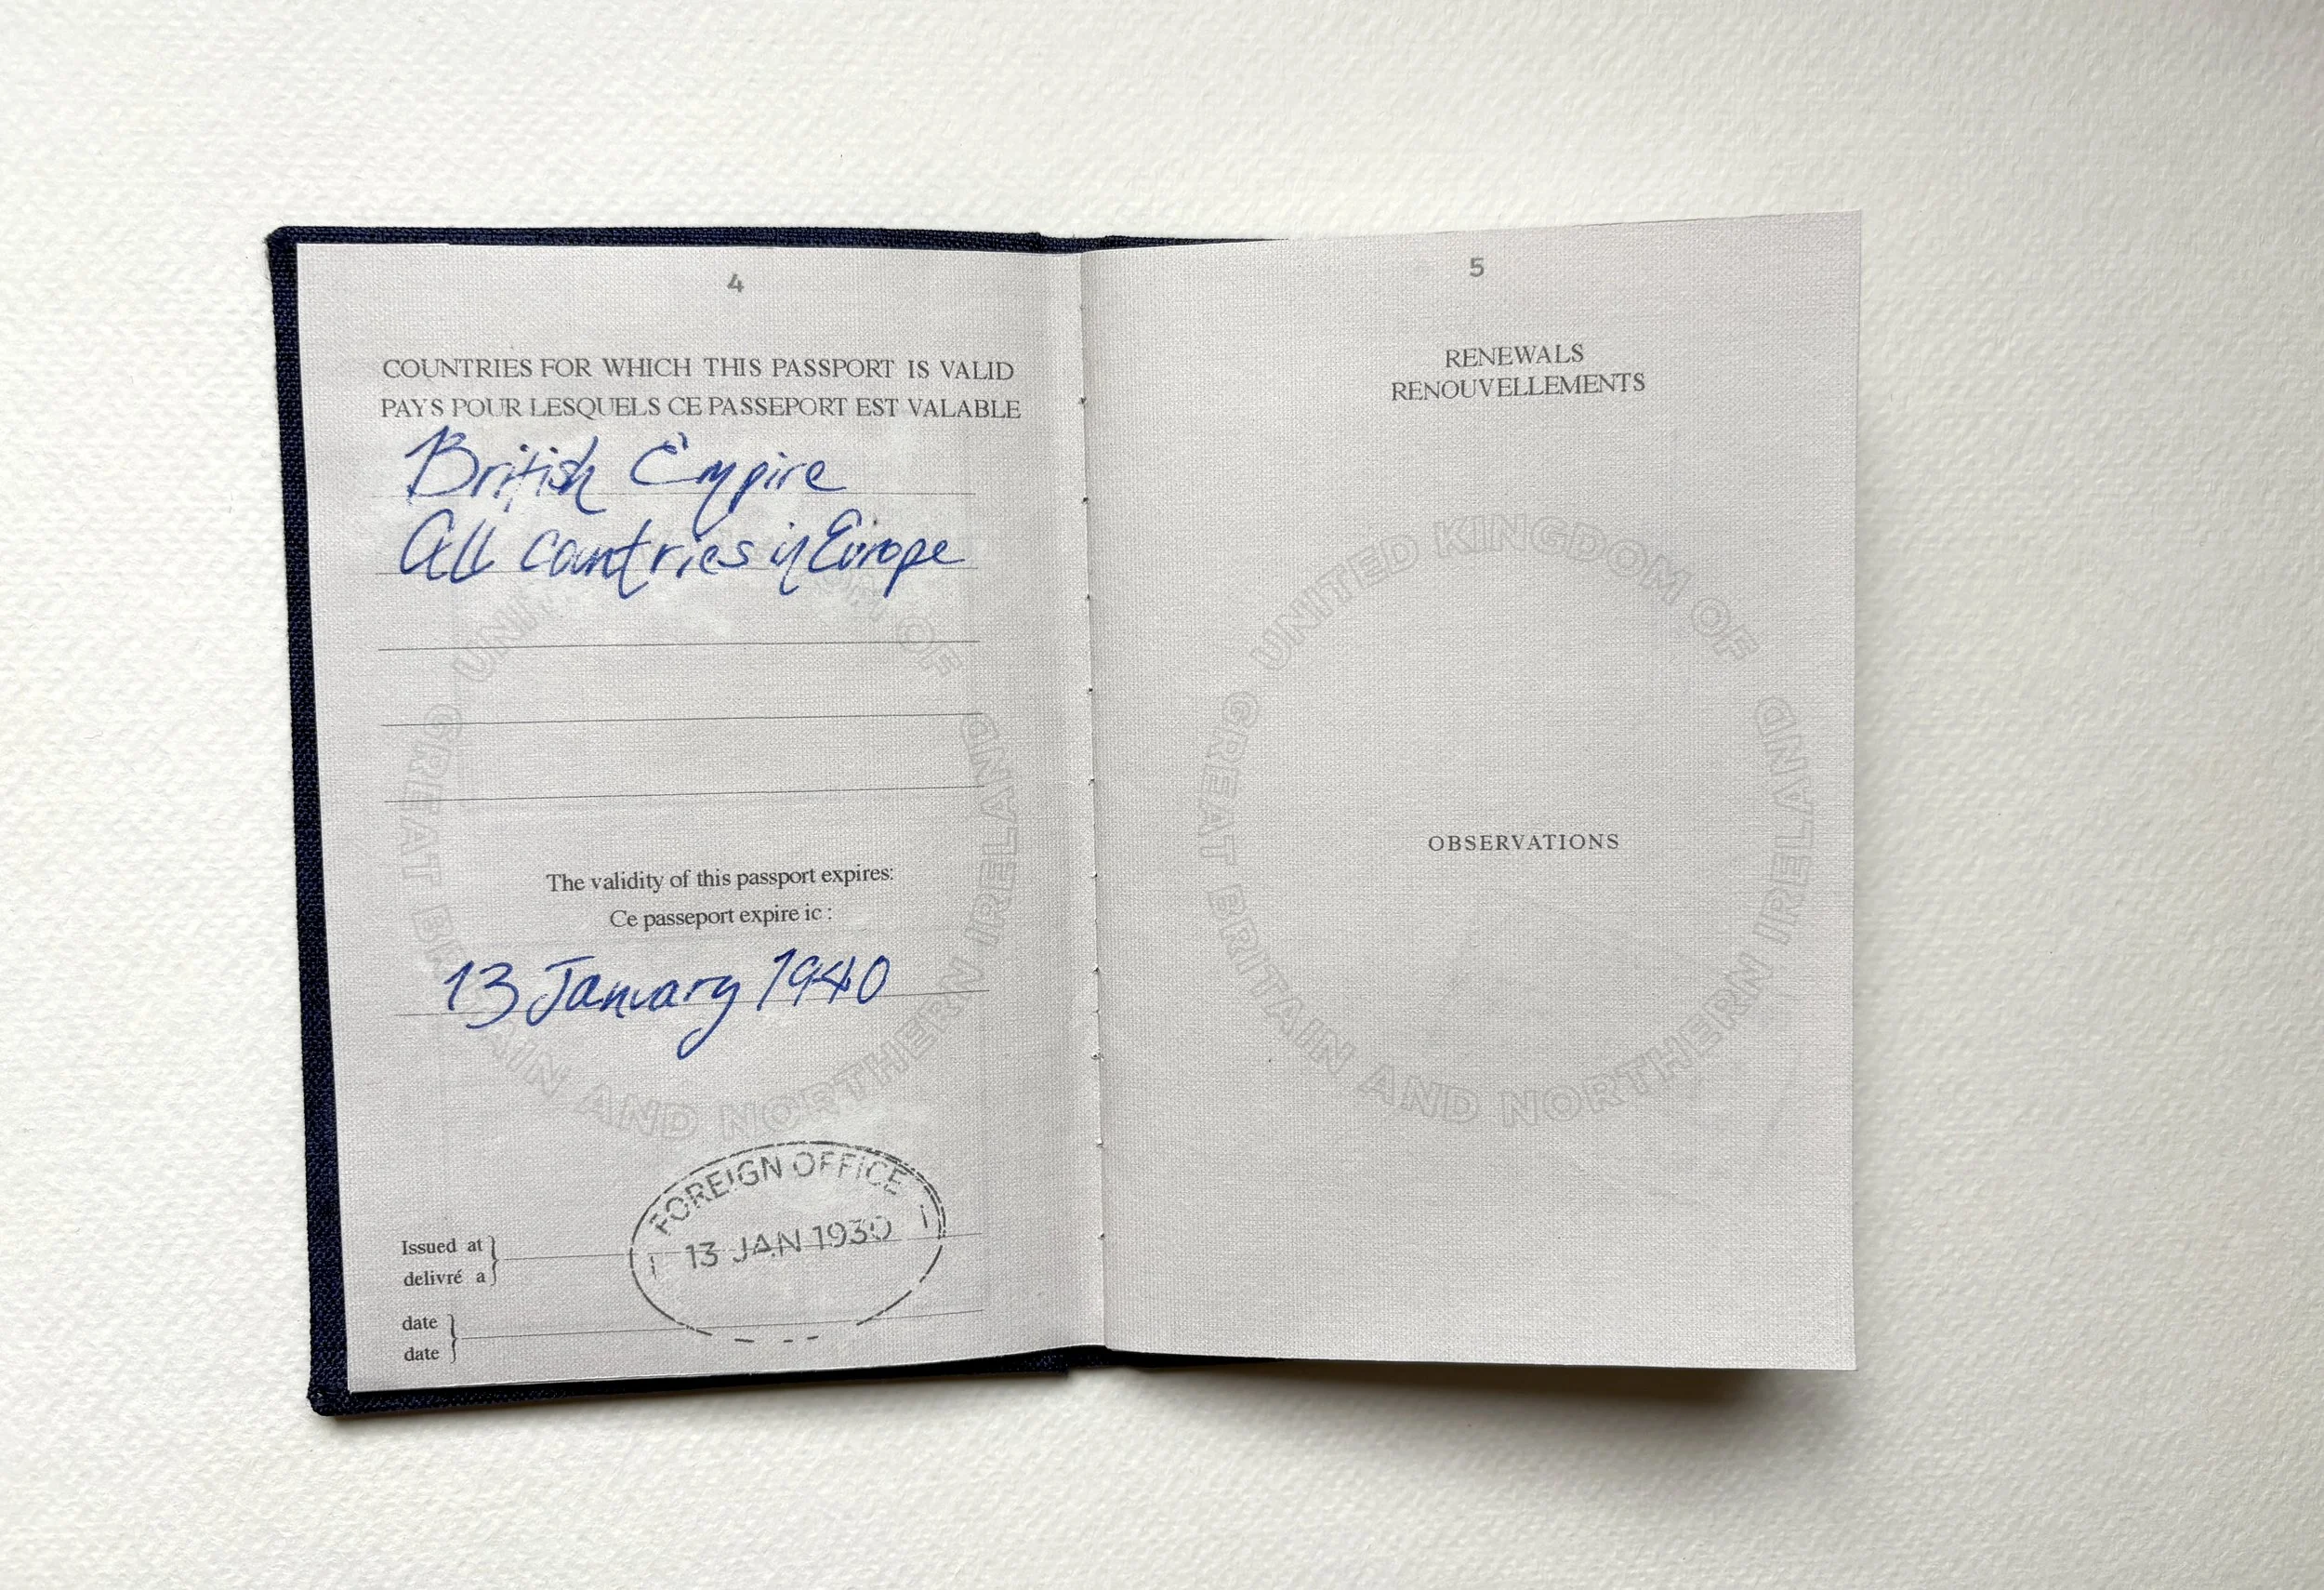 4
COUNTRIES FOR WHICH THIS PASSPORT IS VALID
PAYS POUR LESQUELS CE PASSEPORT EST VALABLE
British Empire
All countries in Europe
UNITED KINGDOM OF GREAT BRITAIN AND NORTHERN IRELAND
The validity of this passport expires:
Ce passeport expire ic :
13 January 1940
FOREIGN OFFICE
13 JAN 1930
Issued at
delivré a
date
date
5
RENEWALS
RENOUVELLEMENTS
UNITED KINGDOM OF GREAT BRITAIN AND NORTHERN IRELAND
OBSERVATIONS